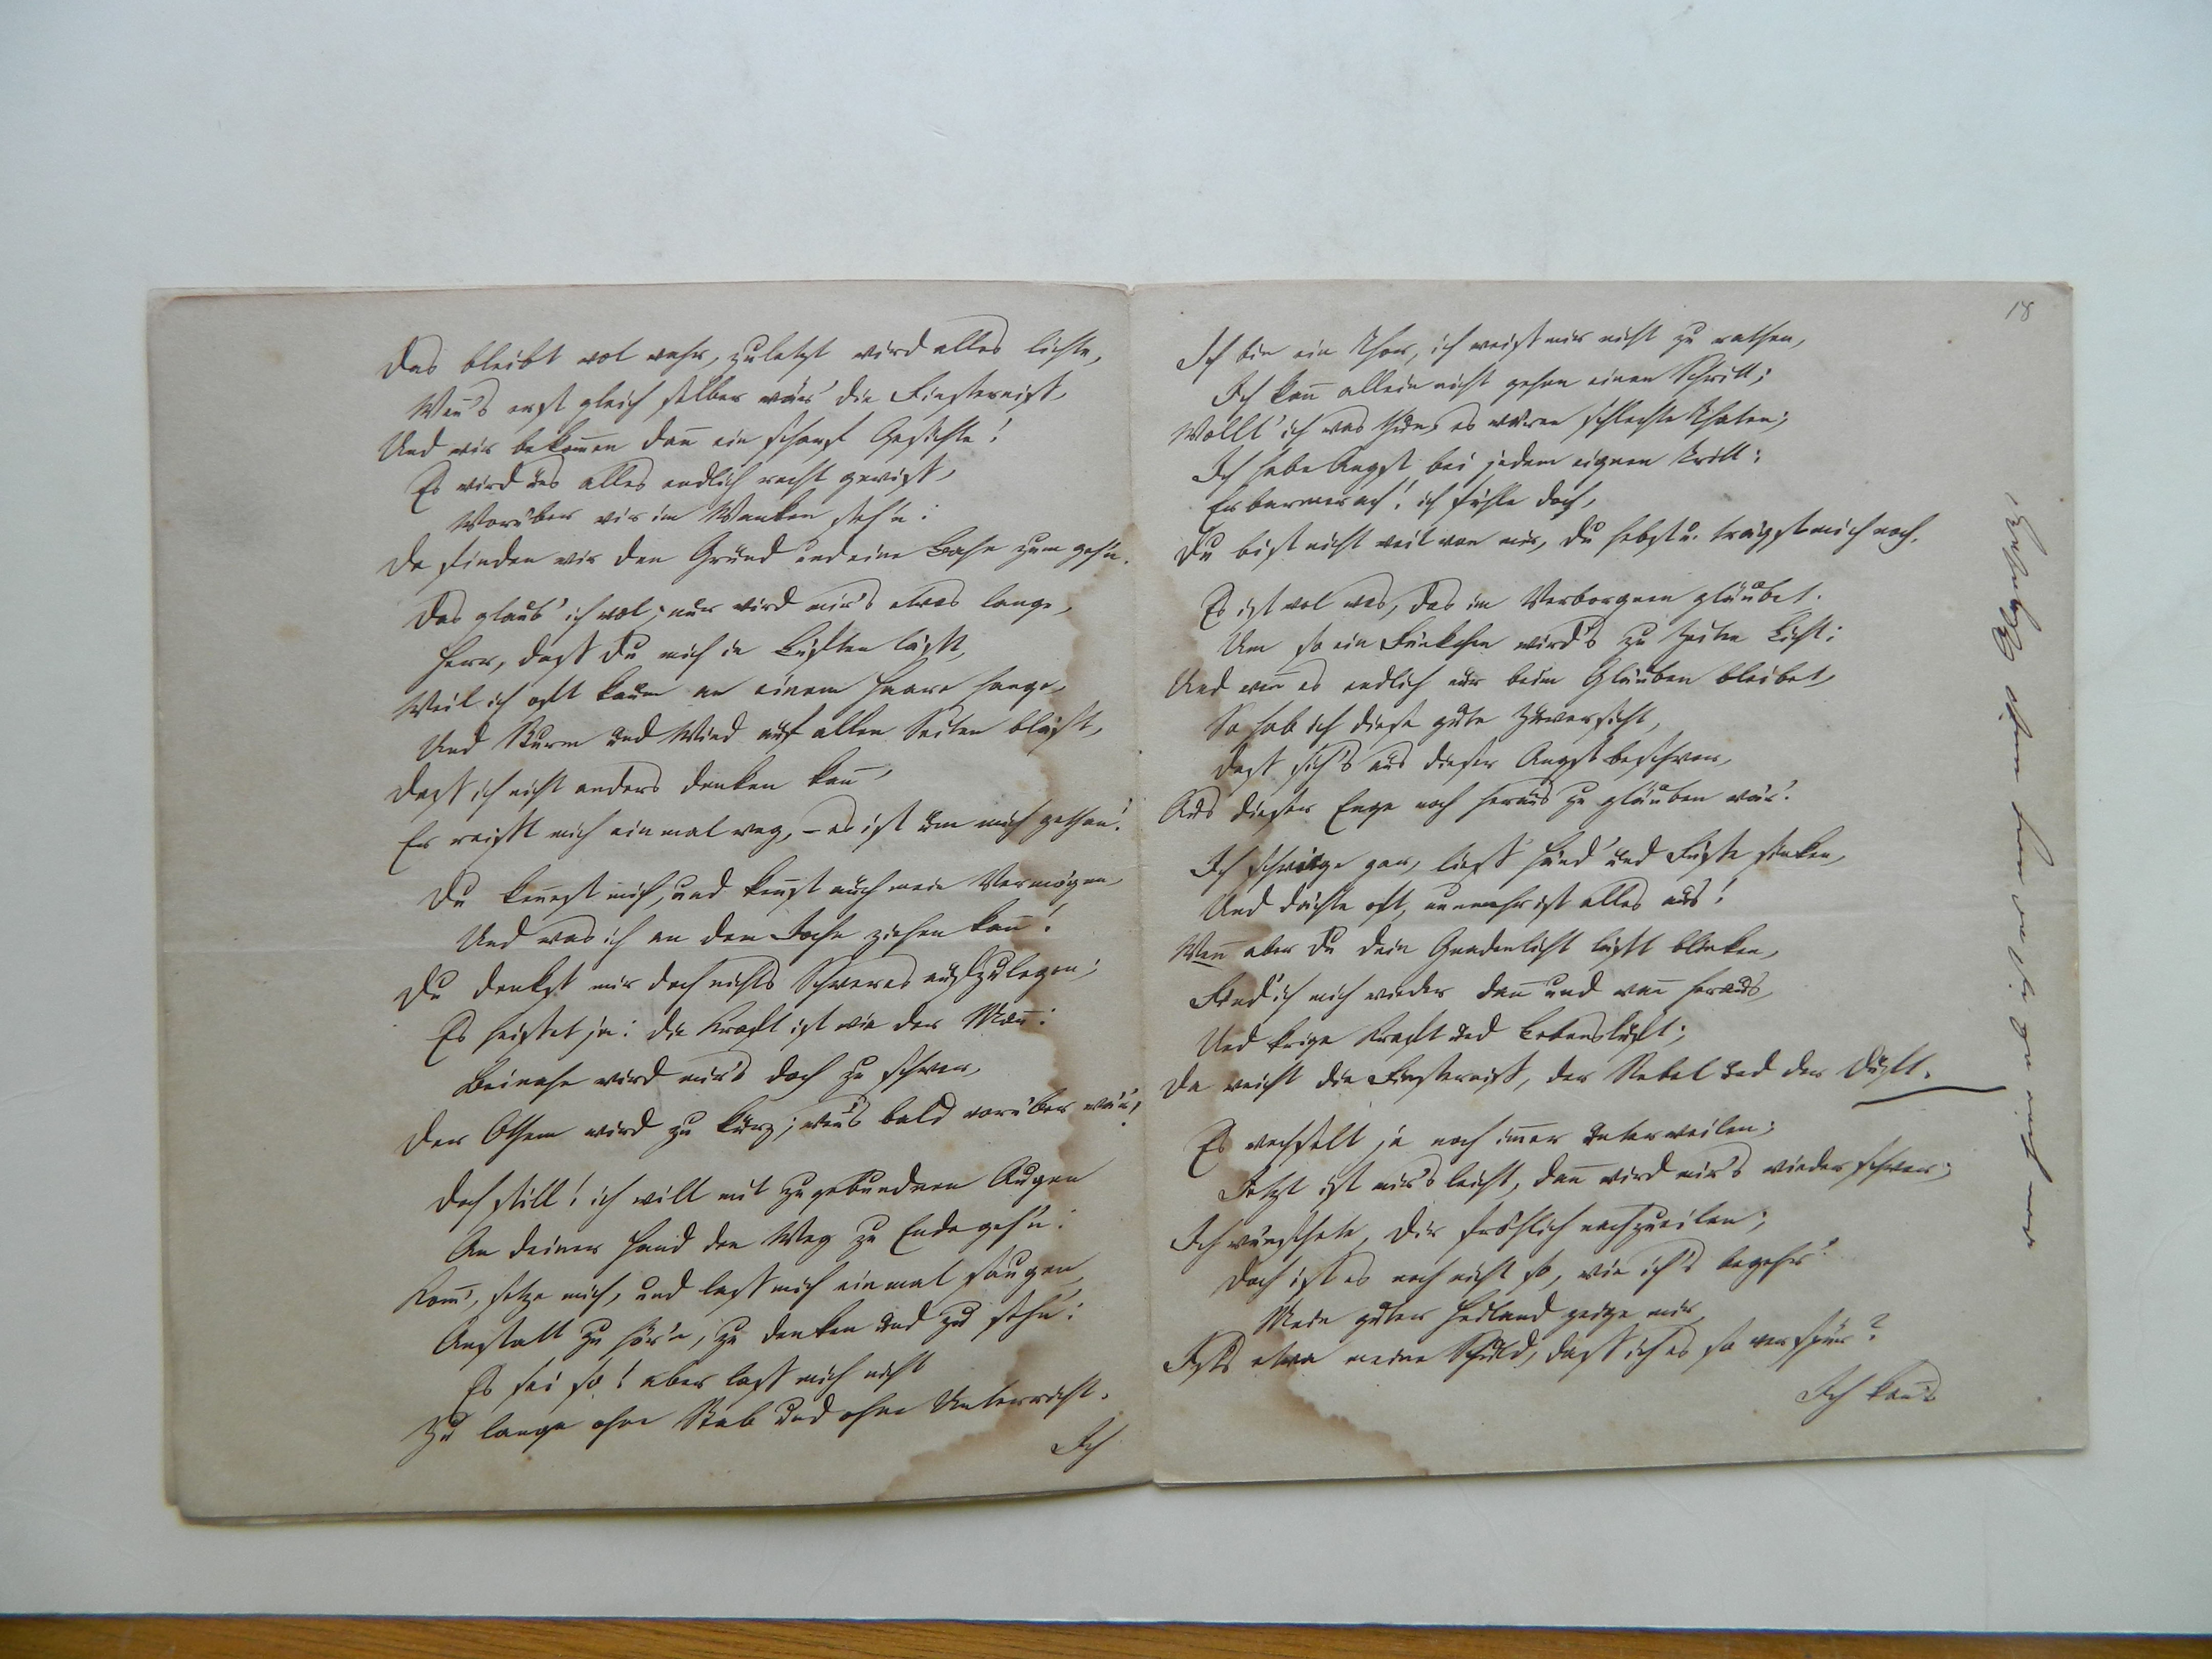 Das bleibt wol wahr, zuletzt wird alles lichte,
Wen̅'s erst gleich selber wär' die Finsterniß,
Und wir bekom̅en dan̅ ein scharf Gesichte!
Es wird uns alles endlich recht gewiß,
Worüber wir im Wanken steh'n:
Da finden wir den Grund und eine Bahn zum geh'n.
Das glaub' ich wol; nur wird mir's etwas lange,
Herr, daß Du mich in Lüften läßt,
Weil ich oft kaum an einem Haare hange,
Und Sturm und Wind auf allen Seiten bläst,
Daß ich nicht anders denken kan̅,
Er reißt mich einmal weg, – es ist um mich gethan!
Du ken̅est mich, und ken̅st auch mein Vermögen,
Und was ich an dem Joche ziehen kan̅!
Du denkst mir doch nichts Schweres aufzulegen;
Es heißet ja: die Kraft ist wie der Man̅:
Beinahe wird mir's doch zu schwer,
Der Othem wird zu kurz; wen̅'s bald vorüber wär'!
Doch still! ich will mit zugebundnen Augen
An deiner Hand den Weg zu Ende geh'n:
Kom̅', setze mich, und laß mich einmal saugen,
Anstatt zu hör'n, zu denken und zu seh'n:
Es sei so! aber laß mich nicht
Zu lange ohne Stab und ohne Unterricht.
Ich
18
Ich bin ein Thor, ich weiß mir nicht zu rathen,
Ich kan̅ allein nicht gehen einen Schritt;
Wollt' ich was thun, es wären schlechte Thaten;
Ich habe Angst bei jedem eignen Tritt:
Erbarmer ach! ich fühle doch,
Du bist nicht weit von mir, Du hebst u. trägst mich noch.
Es ist wol was, das im Verborgnen gläubet.
Um so ein Fünkchen wird's zu Zeiten Licht:
Und wen̅ es endlich nur beim Glauben bleibet,
So hab ich diese gute Zuversicht,
Daß sich's aus dieser Angst beschwer,
Aus dieser Enge noch heraus zu glauben wär'.
Ich schwitze gar, ließ Händ' und Füße sinken,
Und dächte oft, nunmehr ist alles aus!
Wen̅ aber Du dein Gnadenlicht läßt blinken,
Find' ich mich wieder dan̅ und wan̅ heraus,
Und krige Kraft und Lebensluft;
Da weicht die Finsterniß, der Nebel und der Duft.
Es wechselt ja noch im̅er unterweilen;
Jetzt ist mir's leicht, dan̅ wird mir's wieder schwer;
Ich wünschete, Dir fröhlich nachzueilen;
Doch ist es noch nicht so, wie ich's begehr'
Mein guter Heiland zeige mir,
Ists etwa meine Schuld, daß ich es so verspür?
Ich kan̅'s